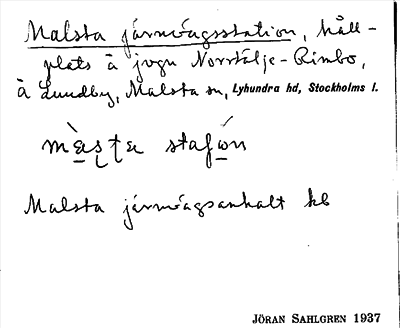 Malsta järnvägsstation, håll-
plats å jvgn Norrtälje-Rimbo,
å Lundby, Malsta sn, Lyhundra hd, Stockholms l.
stafo̱n
Malsta järnvägsanhalt kb
JÖRAN SAHLGREN 1937